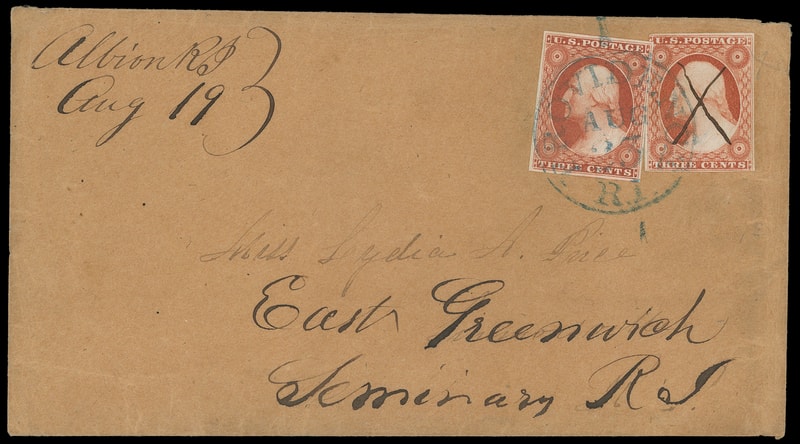 Albion R I
Aug 19
U.S. POSTAGE
THREE CENTS
U.S. POSTAGE
THREE CENTS
AUG
R.I.
Miss Lydia A. Price
East Greenwich
Seminary R I